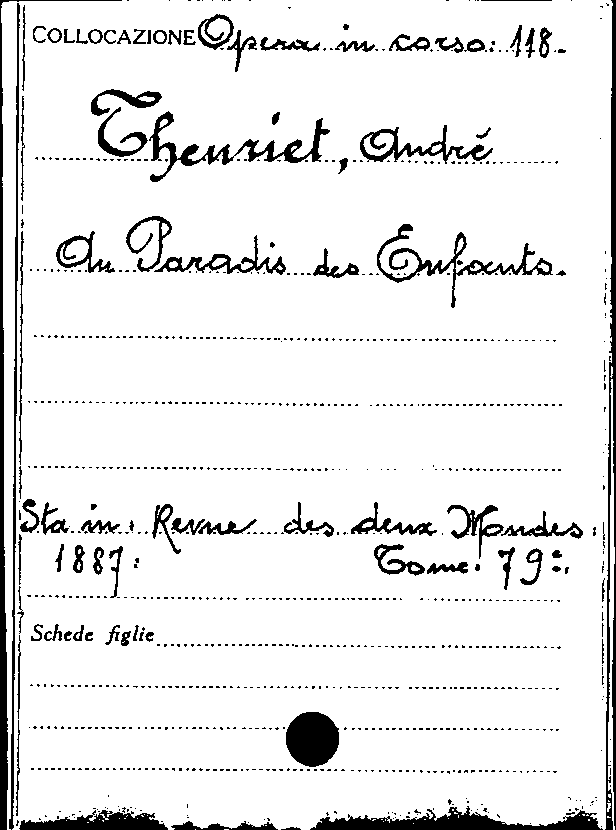 COLLOCAZIONE Opera in corso: 118.
Theuriet, André
Au Paradis des Enfants.
Sta in: Revue des deux Mondes:
1887: Tome: 79º:
Schede figlie